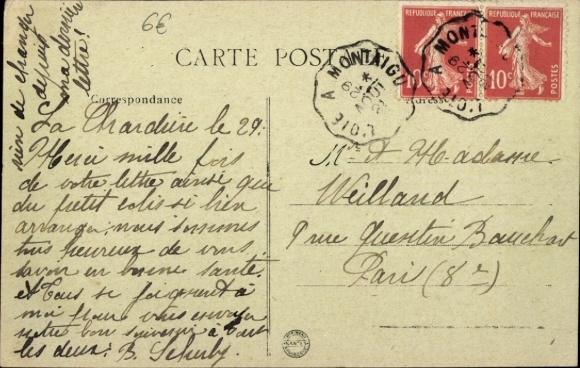 6€
rien de changer
depuis
ma dernière
lettre!
CARTE POSTALE
RÉPUBLIQUE FRANÇAISE
10c
RÉPUBLIQUE FRANÇAISE
10c
A MONTAIGU
A MONT
Correspondance
Adresse
La Chardière le 29.
Merci mille fois
de votre lettre ainsi que
du petit colis si bien
arranger, nous sommes
très heureux de vous
savoir en bonne santé.
et tous se joignent à
moi pour vous envoyer
notre bon souvenir à tout
les deux. B.
Mr et Madame
Weilland
9 rue Quentin Bauchart
Paris (8e)